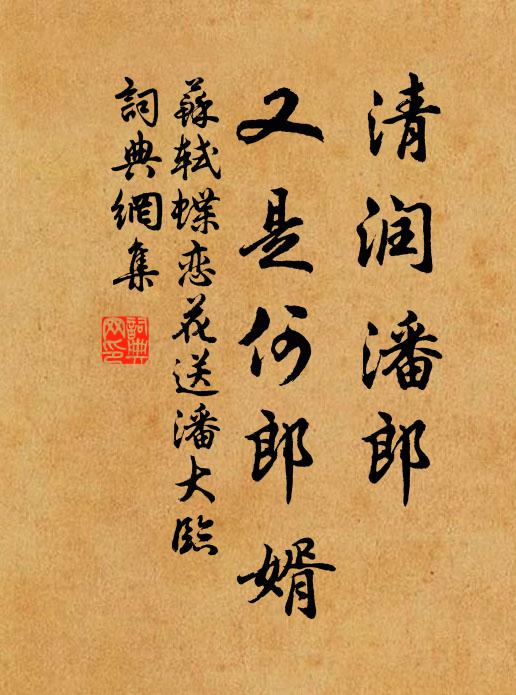 清润潘郎
又是何郎婿
蘇軾蝶恋花送潘大臨
詞典網集
詞典网印